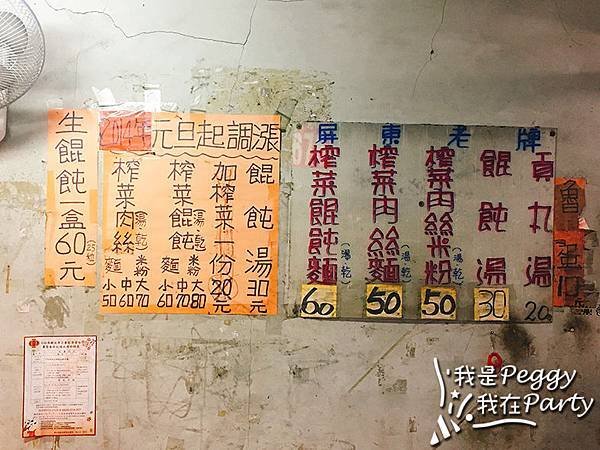 生餛飩一盒60元
2014年元旦起調漲
餛飩湯30元
加榨菜一份20元
榨菜餛飩
湯乾
麵 米粉
小60 中70 大80
榨菜肉絲
湯乾
麵 米粉
小50 中60 大70
屏東老牌
貢丸湯 20
餛飩湯 30
榨菜肉絲米粉(湯乾) 50
榨菜肉絲麵(湯乾) 50
榨菜餛飩麵(湯乾) 60
我是Peggy
我在Party